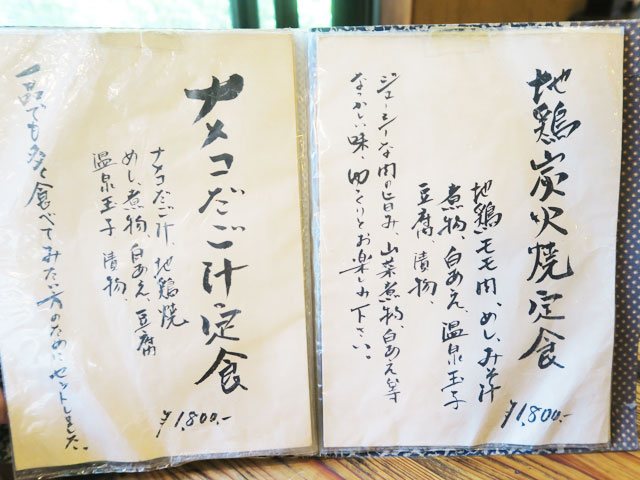 地鶏炭火焼定食
地鶏モモ肉、めし、みそ汁
煮物、白あえ、温泉玉子
豆腐、漬物、
ジューシィな肉の旨み、山菜煮物、白あえ等
なつかしい味、ゆっくりとお楽しみ下さい。
¥1,800.-
ナメコだご汁定食
ナメコだご汁、地鶏焼
めし、煮物、白あえ、豆腐
温泉玉子、漬物、
一品でも多く食べてみたい方のためにセットしました。
¥1,800.-